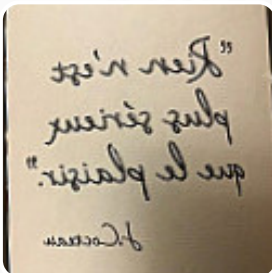 "Rien n'est
plus sérieux
que le plaisir".
J. Cocteau